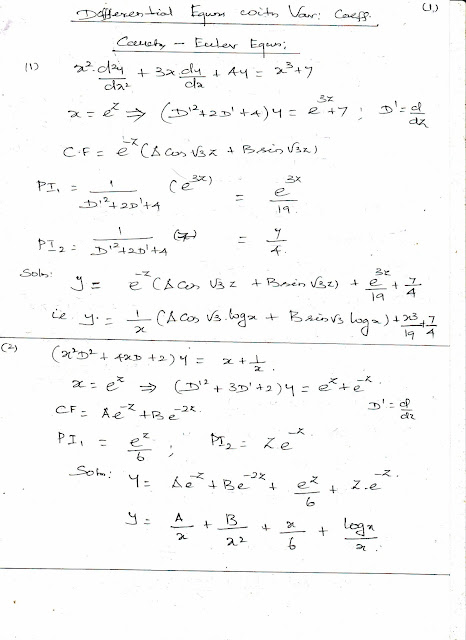 (1)
Differential Equns with Var: Coeff.
Cauchy - Euler Equns:
(1) x². d²y/dx² + 3x dy/dx + 4y = x³+7
x = e^z ⇒ (D'²+2D'+4)y = e^{3z}+7 ; D' = d/dz
C.F = e^{-z} (A cos √3 z + B sin √3 z)
PI₁ = 1/(D'²+2D'+4) (e^{3z}) = e^{3z}/19.
PI₂ = 1/(D'²+2D'+4) (7) = 7/4.
Soln: y = e^{-z} (A cos √3 z + B sin √3 z) + e^{3z}/19 + 7/4
ie y. = 1/x (A cos √3. log x + B sin √3 log x) + x³/19 + 7/4
(2) (x²D² + 4xD + 2) y = x + 1/x.
x = e^z ⇒ (D'² + 3D' + 2) y = e^z + e^{-z}.
CF = Ae^{-z} + Be^{-2z}. D' = d/dz
PI₁ = e^z/6 ; PI₂ = z.e^{-z}.
Soln: y = Ae^{-z} + Be^{-2z} + e^z/6 + z.e^{-z}.
y = A/x + B/x² + x/6 + log x/x.